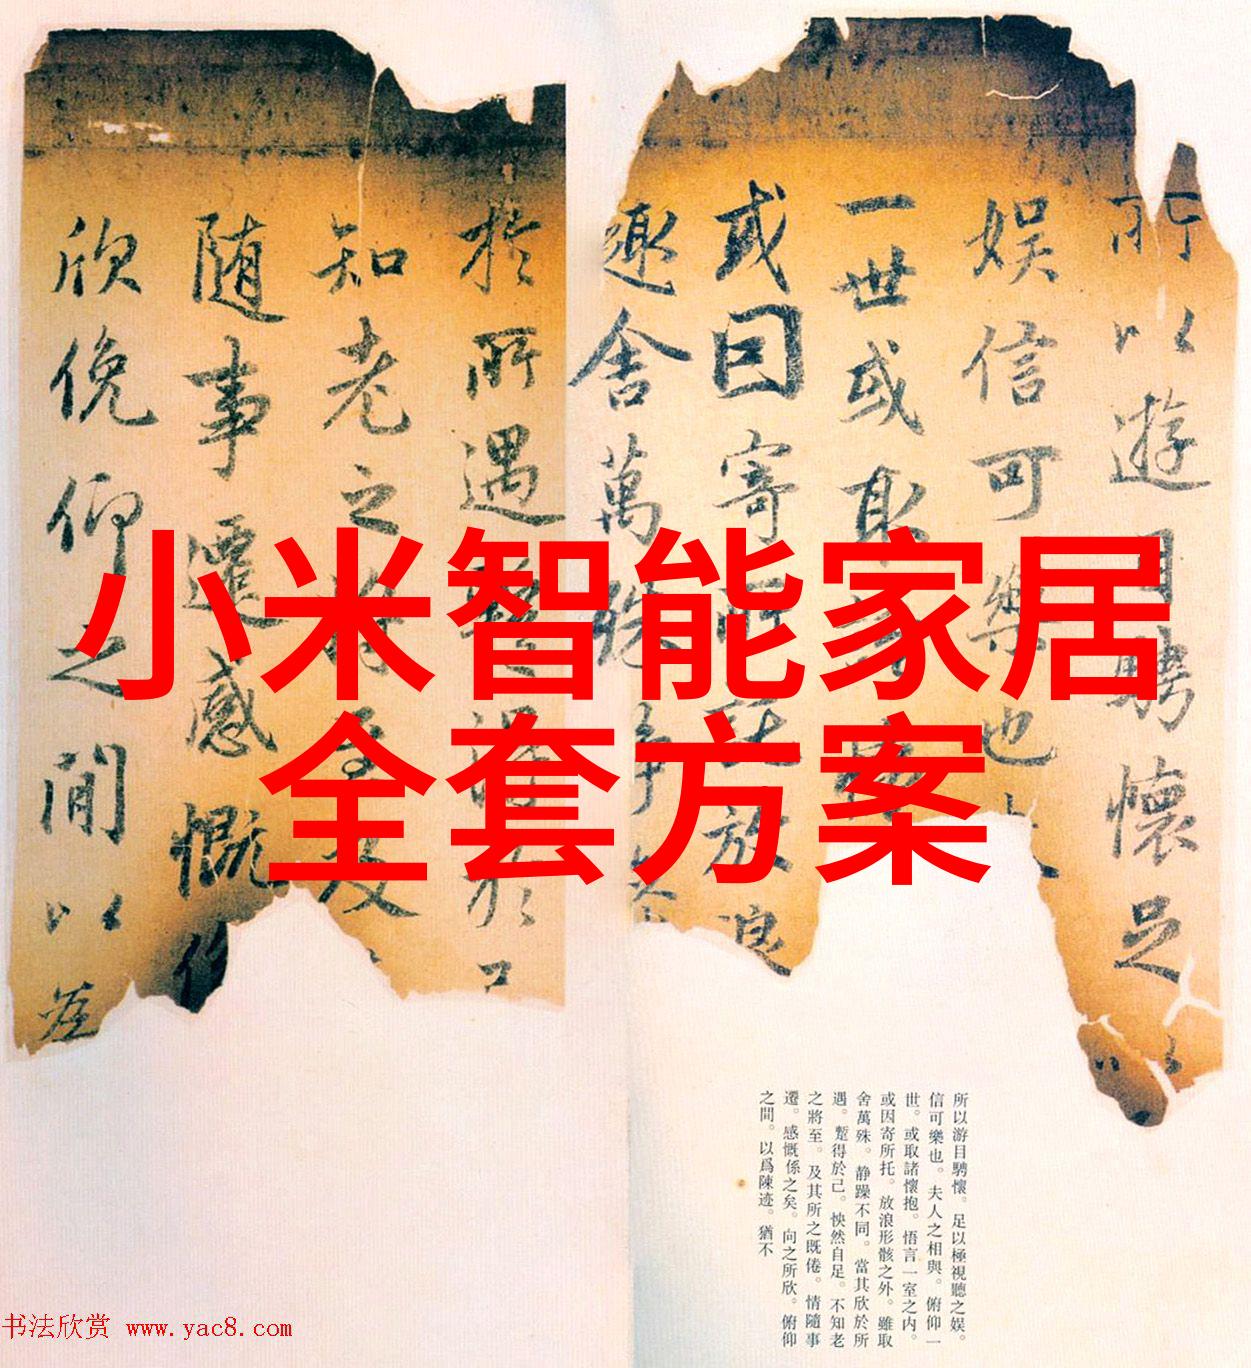 小米智能家居
全套方案
所以遊目騁懷足以
娱信可樂也
一世或取
或因寄所託放浪
趣舍萬殊静
於所遇蹔得於己
知老之將至及
随事遷感慨係
欣俛仰之閒以為
所以游目騁懷。足以極視聽之娱。
信可樂也。夫人之相與。俯仰一
世。或取諸懷抱。悟言一室之内。
或因寄所托。放浪形骸之外。雖取
舍萬殊。静躁不同。當其欣於所
遇。蹔得於己。怏然自足。不知老
之將至。及其所之既倦。情隨事
遷。感慨係之矣。向之所欣。俯仰
之間。以爲陳迹。猶不
书法欣赏 www.yac8.com